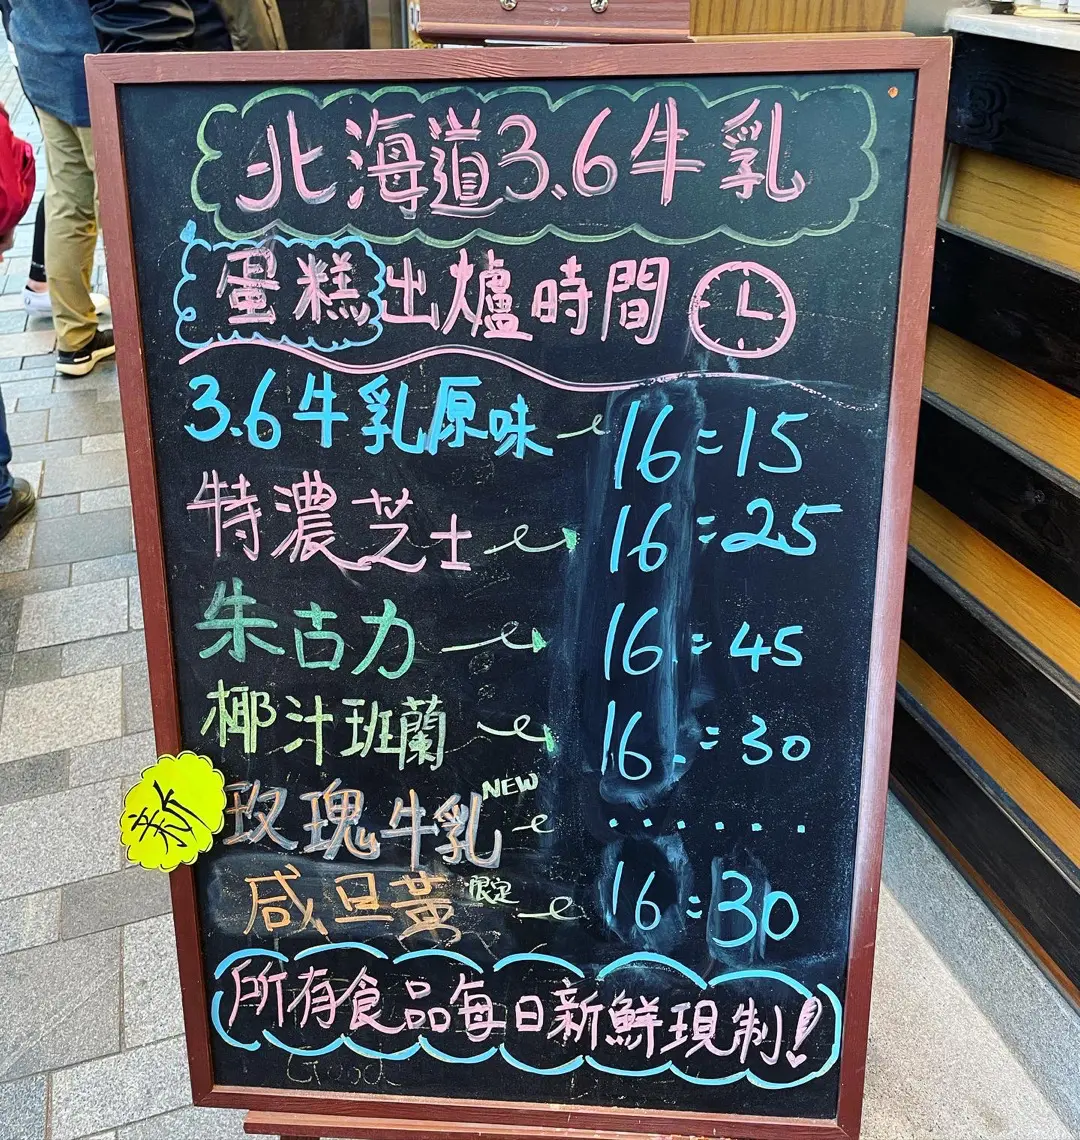 北海道3.6牛乳
蛋糕出爐時間
3.6牛乳原味 16:15
特濃芝士 16:25
朱古力 16:45
椰汁班蘭 16:30
新 玫瑰牛乳 NEW ......
咸旦黃 限定 16:30
所有食品每日新鮮現制!